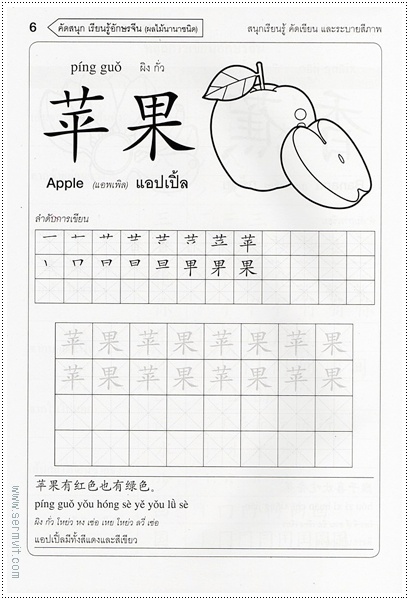 6 คัดสนุก เรียนรู้อักษรจีน (ผลไม้นานาชนิด) สนุกเรียนรู้ คัดเขียน และระบายสีภาพ
píng guǒ ผิง กั่ว
苹果
Apple (แอพเพิล) แอปเปิ้ล
ลำดับการเขียน
苹
果
苹 果 苹 果 苹 果 苹 果
苹 果 苹 果 苹 果 苹 果
苹果有红色也有绿色。
píng guǒ yǒu hóng sè yě yǒu lǜ sè
ผิง กั่ว โหย่ว หง เซ่อ เหย โหย่ว ลวี่ เซ่อ
แอปเปิ้ลมีทั้งสีแดงและสีเขียว
www.sermvit.com